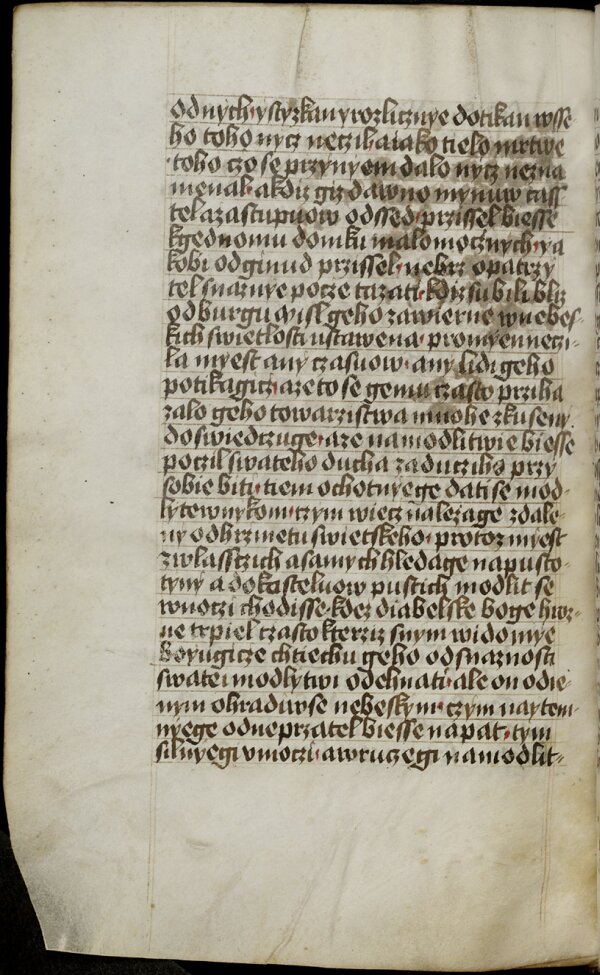 od nych · ystyzkan y rozlicznye dotikan wsse-
ho toho nycz neczil · a iako tielo mrtwe
toho czo se przy nyem dalo nycz nezna
menal · a kdiz giz dawno mynuw czass
tel a zastupuow odssed · przissel biesse
k gednomu domku malomocznych · ya
kobi odginud przissel · nebrz opatrzy
tel snaznye pocze tazati · kdiz su bili bliz
od burgu misl geho zawierne w nebes-
kich swietlosti ustawena · promyen neczi-
la myest any czasuow · any lidi geho
potikagicz · a ze to se gemu czasto prziha
zalo geho towarzistwa mnohe zkuseny
doswiedczuge · a ze na modlitwie biesse
poczil swateho ducha zaducziho przy
sobie biti · tiem ochotnyege dati se mod-
lytewnykom · czym wiecz nalezage zdale-
ny od hrzmetu swietskeho · protoz myest
zwlasstzich a samych hledage na pusto-
tyny a do kosteluow pustich modlit se
w noczi chodisse · kdez diabelske boge hroz-
ne trpiel czasto kterziz s nym widomye
boyugicze chtiechu geho od snaznosti
swatei modlytwi odehnati · ale on odie-
nym obradiw se nebeskym · czym naytem-
nyege od neprzatel biesse napat · tym
silnyegi v moczi · a wruczegi na modlit-